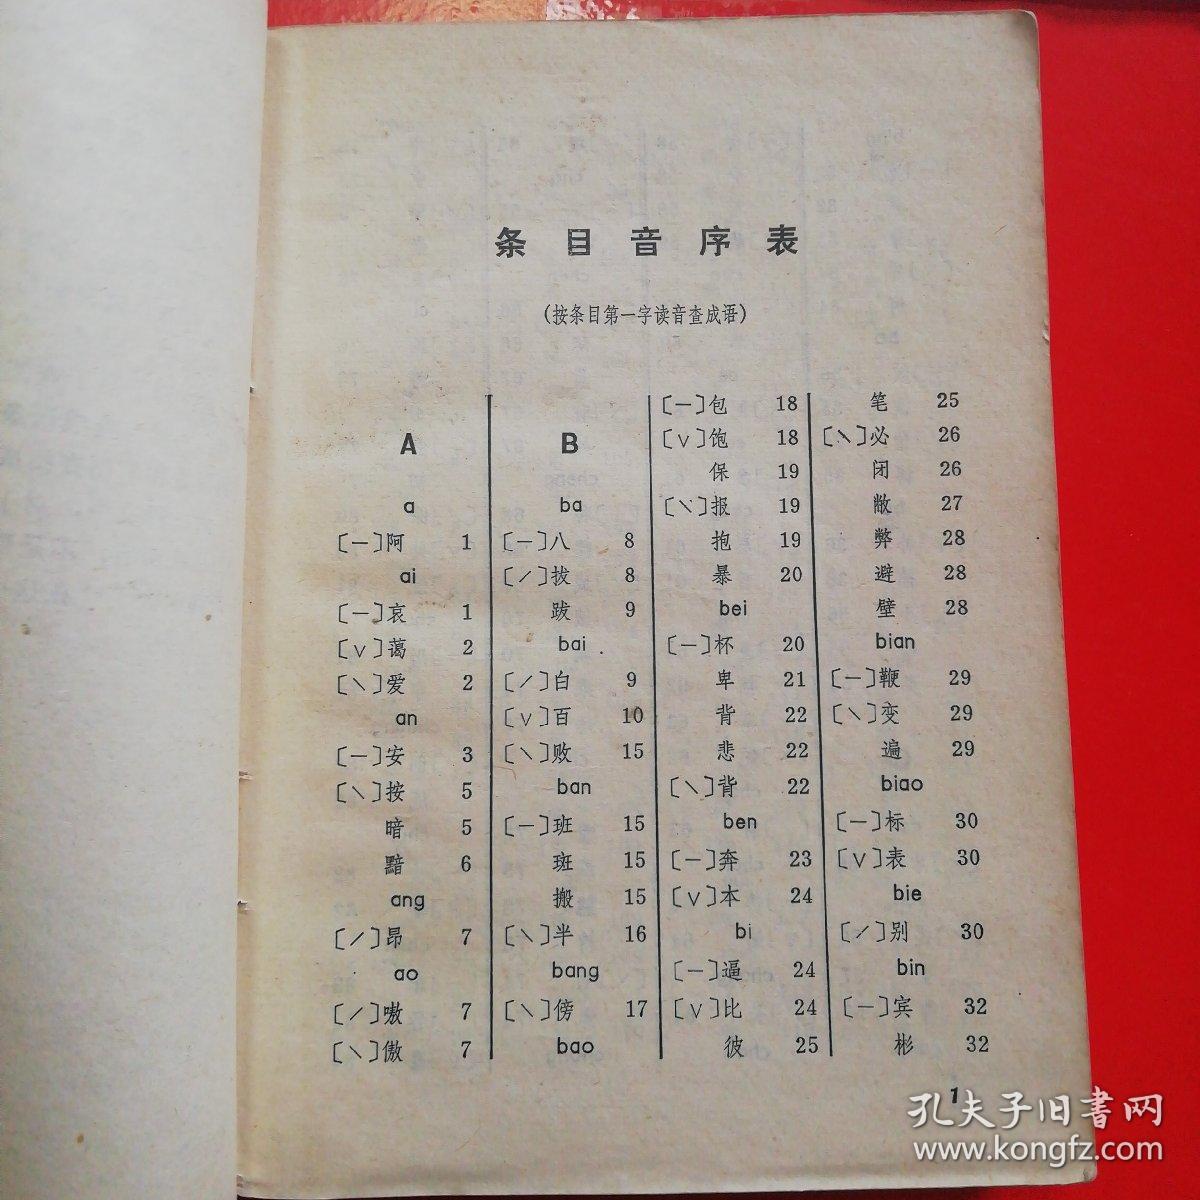 条目音序表
(按条目第一字读音查成语)
A
a
〔一〕阿 1
ai
〔一〕哀 1
〔∨〕蔼 2
〔＼〕爱 2
an
〔一〕安 3
〔＼〕按 5
暗 5
黯 6
ang
〔／〕昂 7
ao
〔／〕嗷 7
〔＼〕傲 7
B
ba
〔一〕八 8
〔／〕拔 8
跋 9
bai
〔／〕白 9
〔∨〕百 10
〔＼〕败 15
ban
〔一〕班 15
斑 15
搬 15
〔＼〕半 16
bang
〔＼〕傍 17
bao
〔一〕包 18
〔∨〕饱 18
保 19
〔＼〕报 19
抱 19
暴 20
bei
〔一〕杯 20
卑 21
背 22
悲 22
〔＼〕背 22
ben
〔一〕奔 23
〔∨〕本 24
bi
〔一〕逼 24
〔∨〕比 24
彼 25
笔 25
〔＼〕必 26
闭 26
敝 27
弊 28
避 28
壁 28
bian
〔一〕鞭 29
〔＼〕变 29
遍 29
biao
〔一〕标 30
〔∨〕表 30
bie
〔／〕别 30
bin
〔一〕宾 32
彬 32
1
孔夫子旧书网
www.kongfz.com